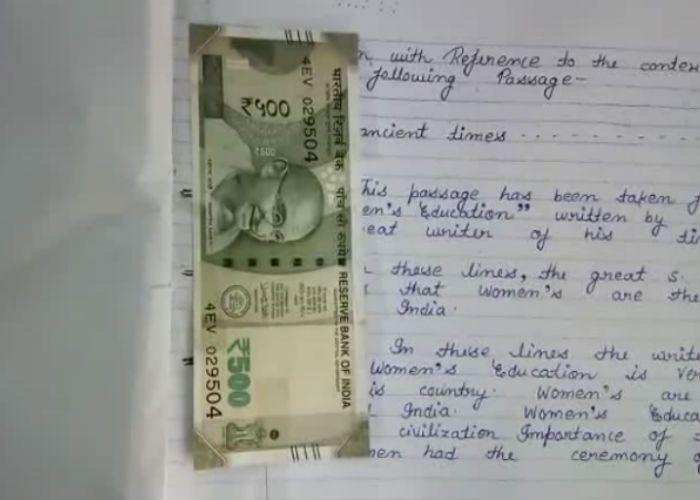 n, with Reference to the contex
following Passage-
ancient times - - - - - - - -
This passage has been taken f
en's Education" written by
eat writer of his di
these lines, the great s.
that women's are the
India.
In these lines the write
women's Education is ver
is country. Women's are
India. Women's Educa
civilization Importance of
men had the ceremony of
4EV 029504
₹५००
₹500
भारतीय रिज़र्व बैंक
पांच सौ रुपये
RESERVE BANK OF INDIA
₹500
4EV 029504